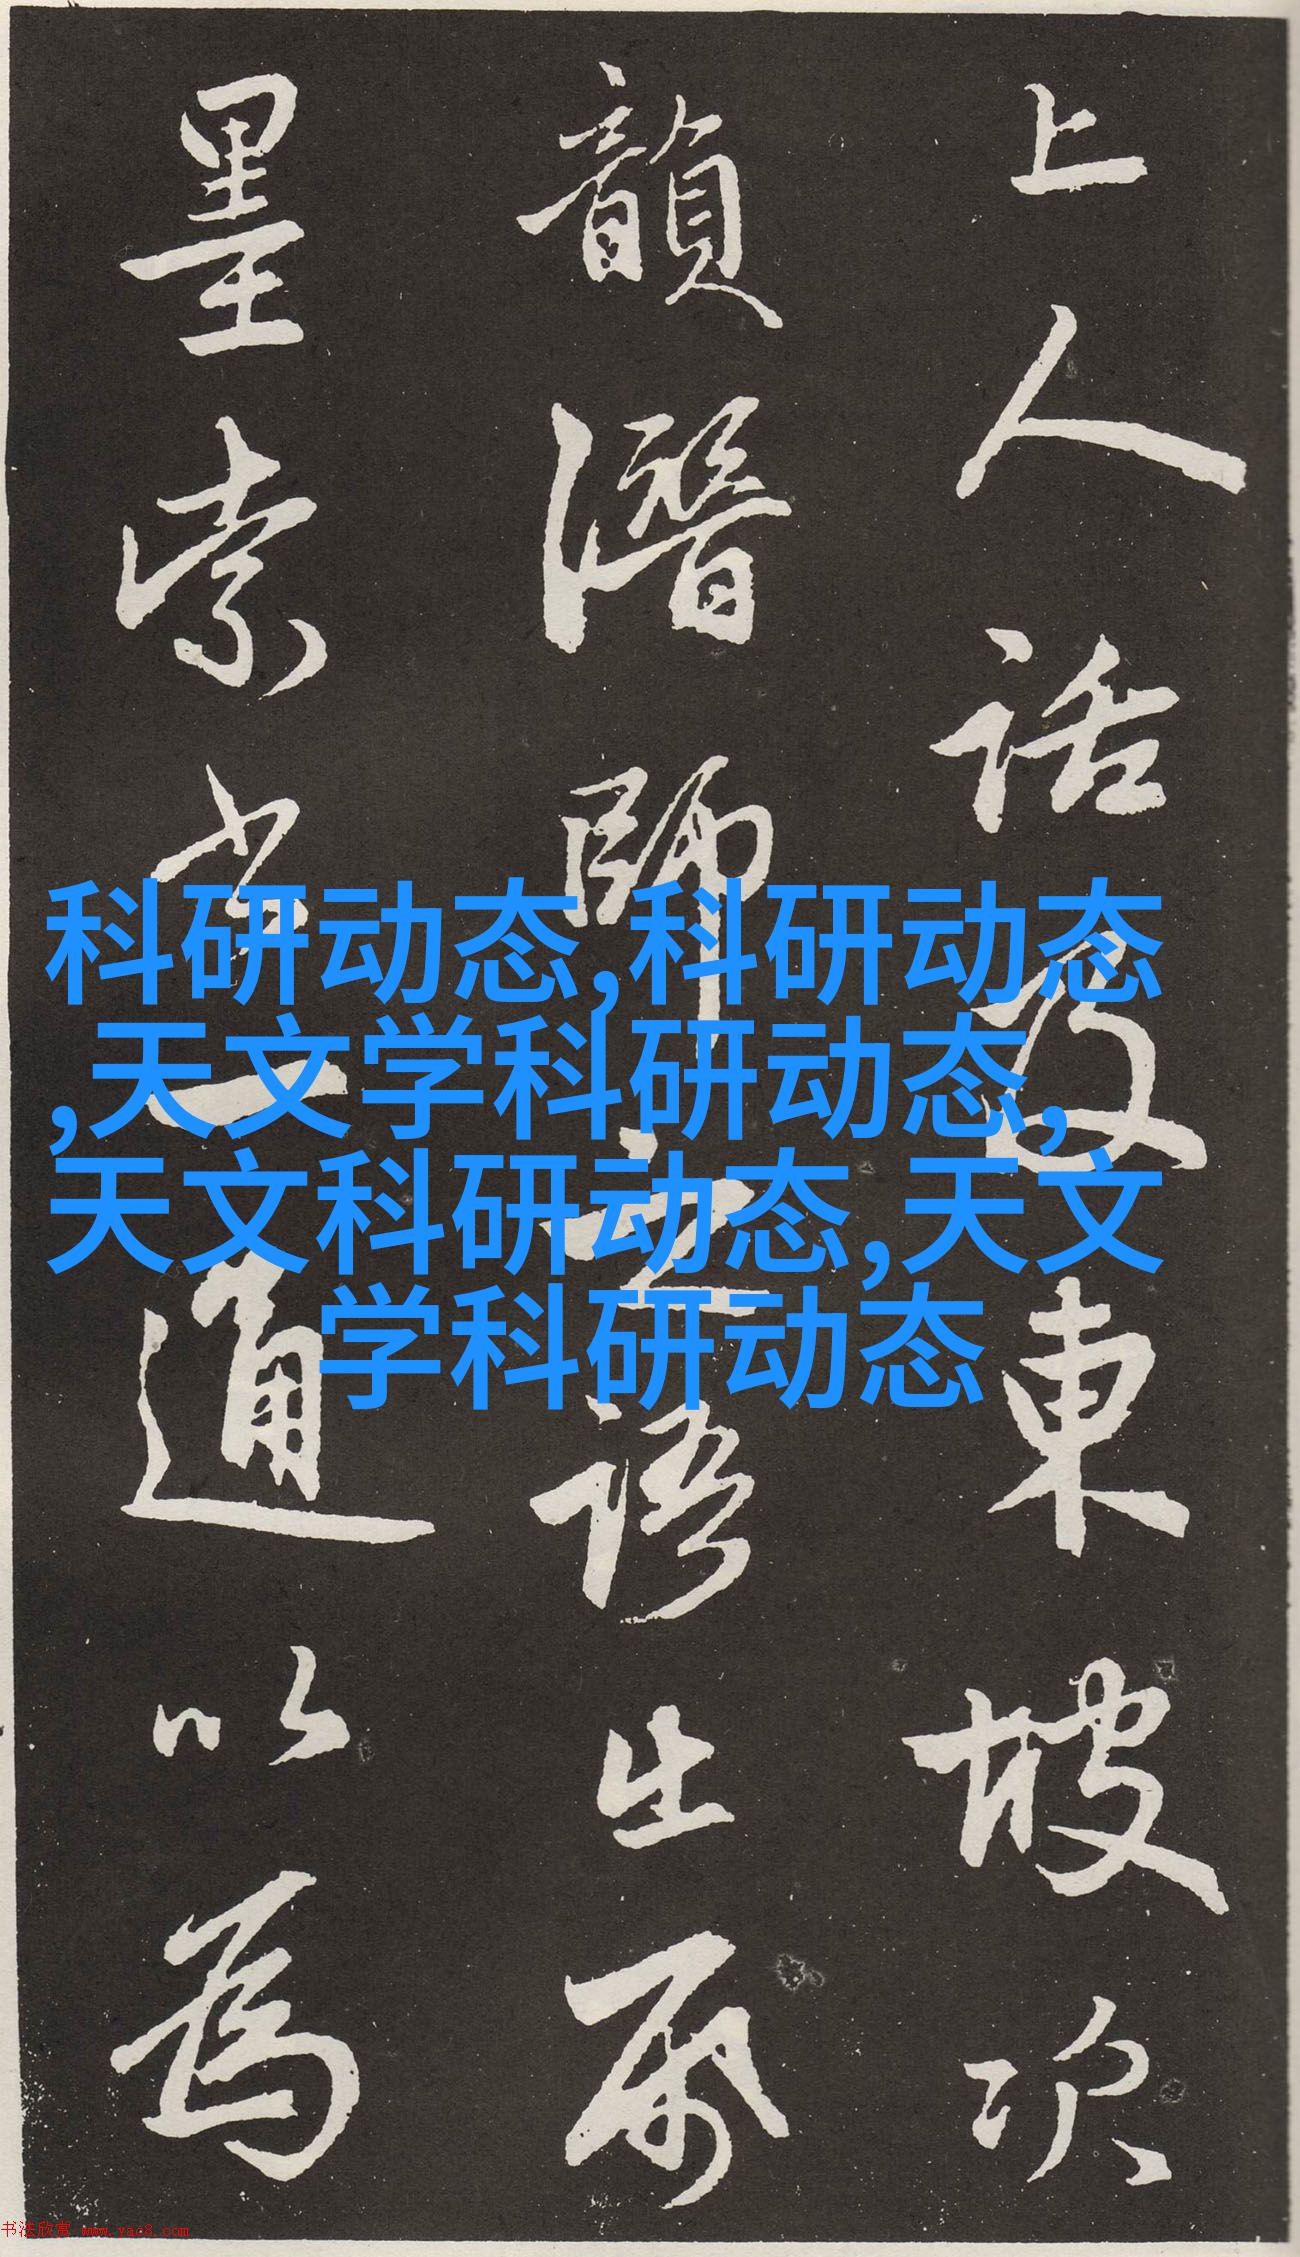 上人話及東坡次
韻潛師之語出
墨索書一通以為
科研动态,科研动态
,天文学科研动态,
天文科研动态,天文
学科研动态
书法欣赏 www.yac8.com